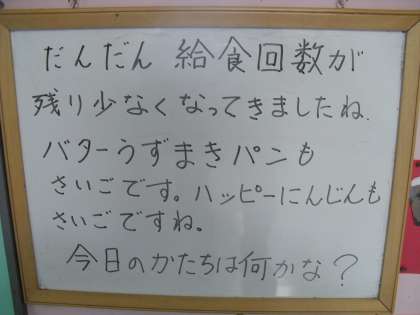 だんだん 給食回数が
残り少なくなってきましたね.
バターうずまきパンも
さいごです。ハッピーにんじんも
さいごですね。
今日のかたちは何かな？